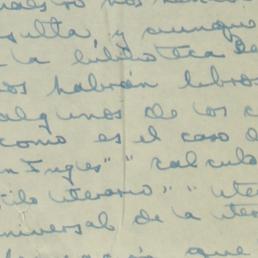 sulta, y aunque
la biblioteca de
os habrán libros
algunos de los c
como es el caso d
n Ingles" "calculo
cilo literario" "liter
niversal de la liter
que